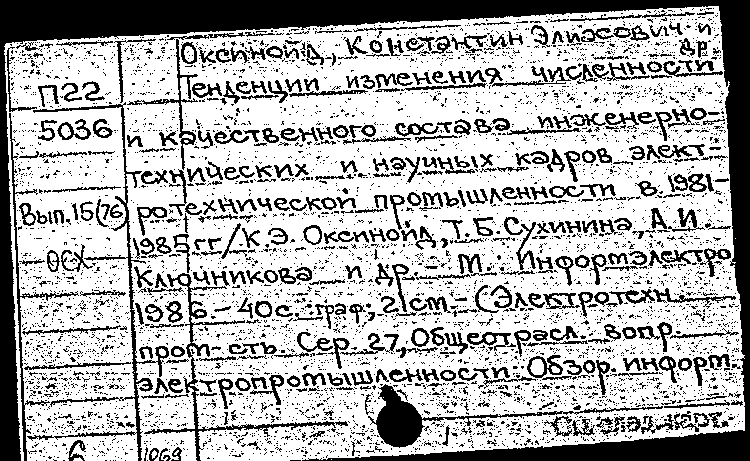 Оксинойд, Константин Элиасович и др.
П22
Тенденции изменения численности
5036
и качественного состава инженерно-
технических и научных кадров элект-
Вып.15(76)
ротехнической промышленности в 1981-
1985гг/К.Э. Оксинойд, Т.Б.Сухинина, А.И.
ОСХ
Ключникова и др.- М.: Информэлектро
1986.- 40с.:граф; 21см.- (Электротехн.
пром-сть. Сер. 27, Общеотрасл. вопр.
электропромышленности: Обзор. информ.
См. след. карт.
1069